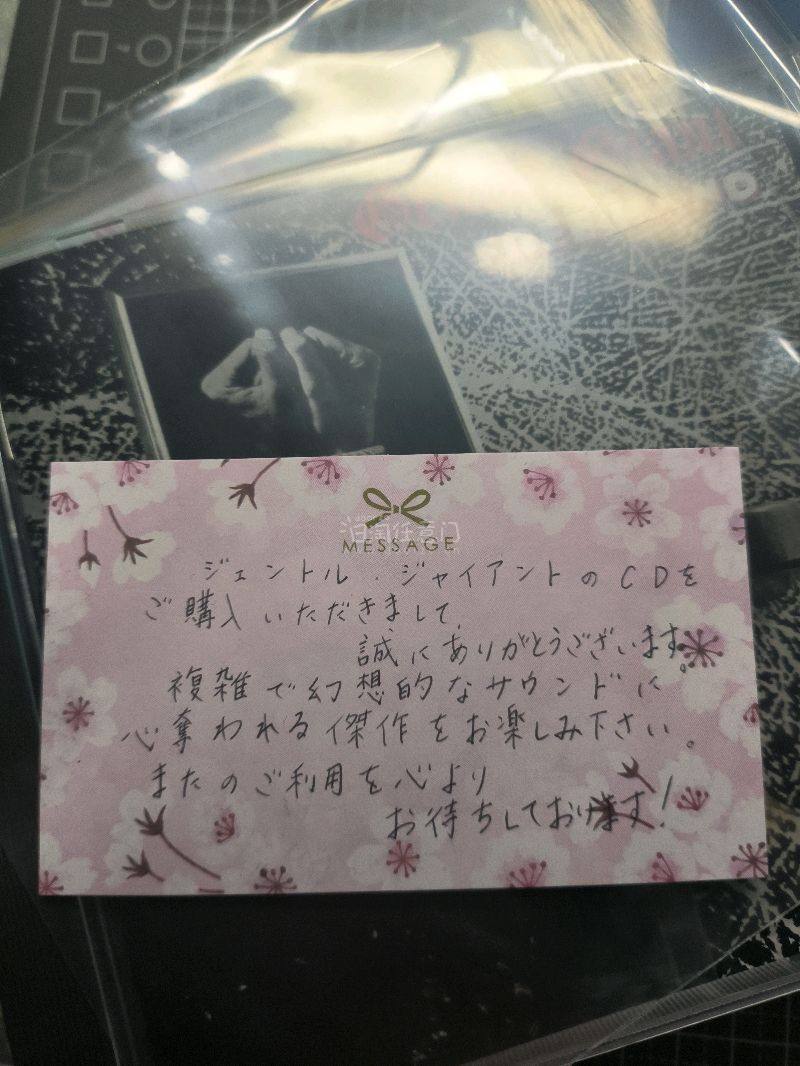 MESSAGE
ジェントル・ジャイアントのCDを
ご購入いただきまして、
誠にありがとうございます。
複雑で幻想的なサウンドに
心奪われる傑作をお楽しみ下さい。
またのご利用を心より
お待ちしております!